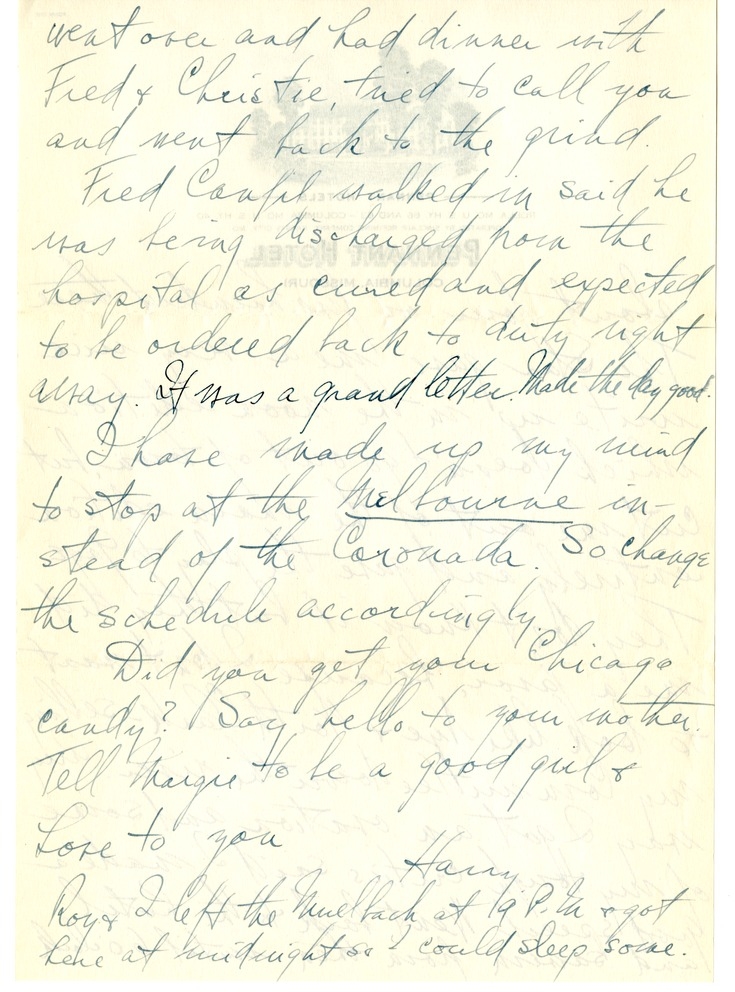 went over and had dinner with
Fred & Christie, tried to call you
and went back to the grind.
Fred Canfil walked in said he
was being discharged from the
hospital as cured and expected
to be ordered back to duty right
away. It was a grand letter. Made the day good.
I have made up my mind
to stop at the Melbourne in-
stead of the Coronada. So change
the schedule accordingly.
Did you get your Chicago
candy? Say hello to your mother.
Tell Margie to be a good girl &
Love to you
Harry
Roy & I left the Muelbach at P.M & got
here at midnight so I could sleep some.
PENNANT HOTEL
COLUMBIA, MISSOURI